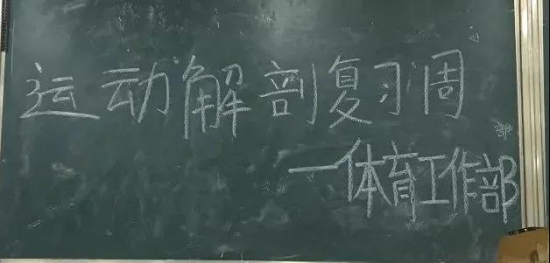 运动解剖复习周
部
—体育工作部